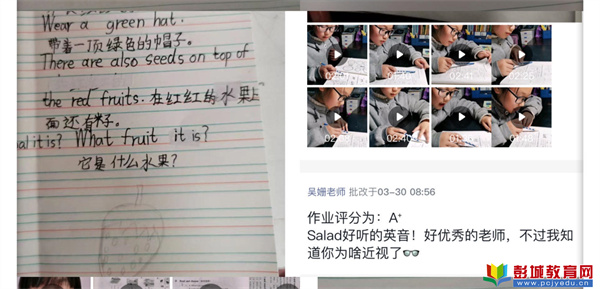 Wear a green hat.
带着一顶绿色的帽子。
There are also seeds on top of
the red fruits. 在红红的水果上
面还有籽子。
al it is? What fruit it is?
它是什么水果?
02:41
02:25
吴姗老师 批改于03-30 08:56
作业评分为：A+
Salad好听的英音！好优秀的老师，不过我知
道你为啥近视了👓
彭城教育网
www.pcjyedu.cn